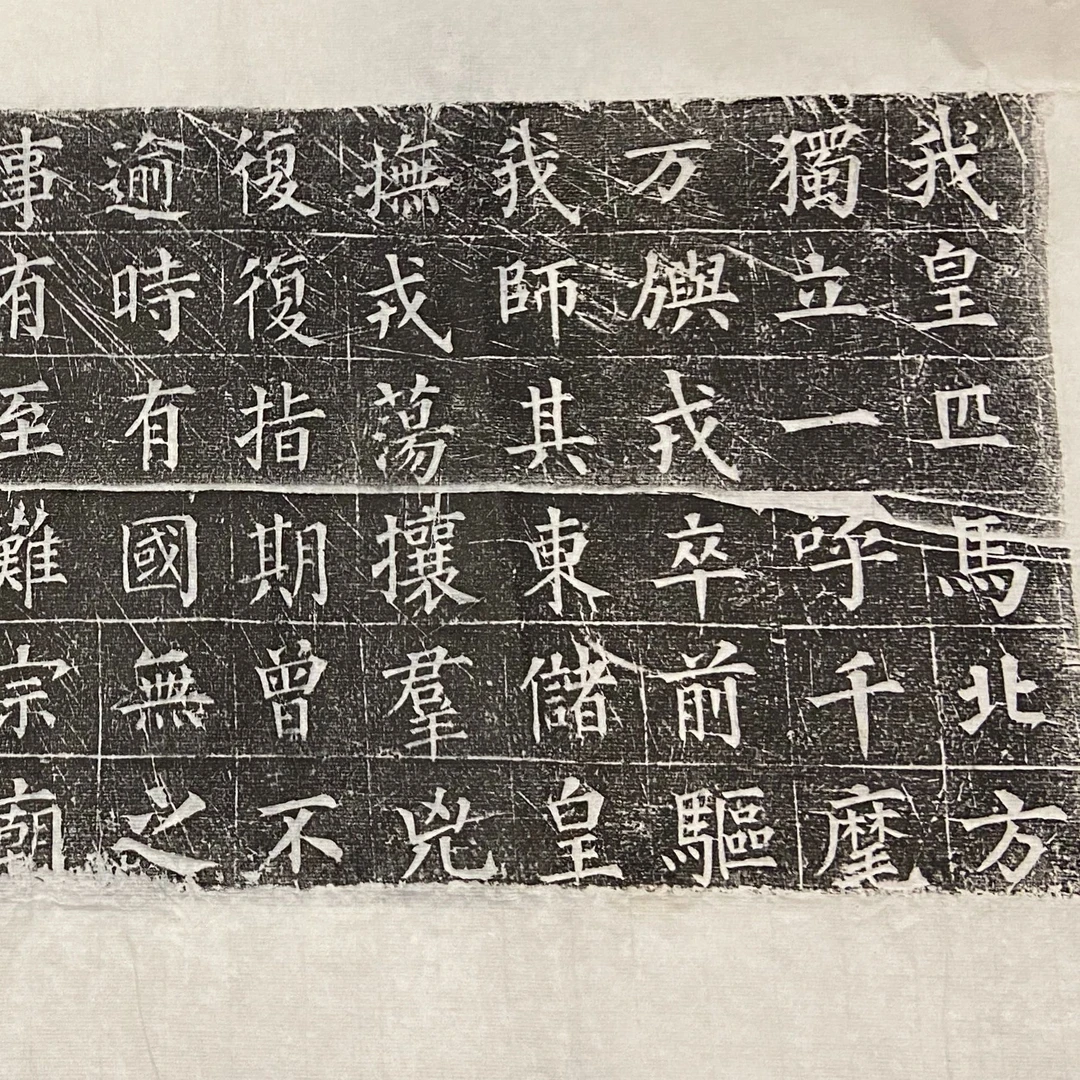 我皇匹馬北方
獨立一呼千麾
万旟戎卒前驅
我師其東儲皇
撫戎蕩攘羣兇
復復指期曾不
逾時有國無之
事有至難宗廟